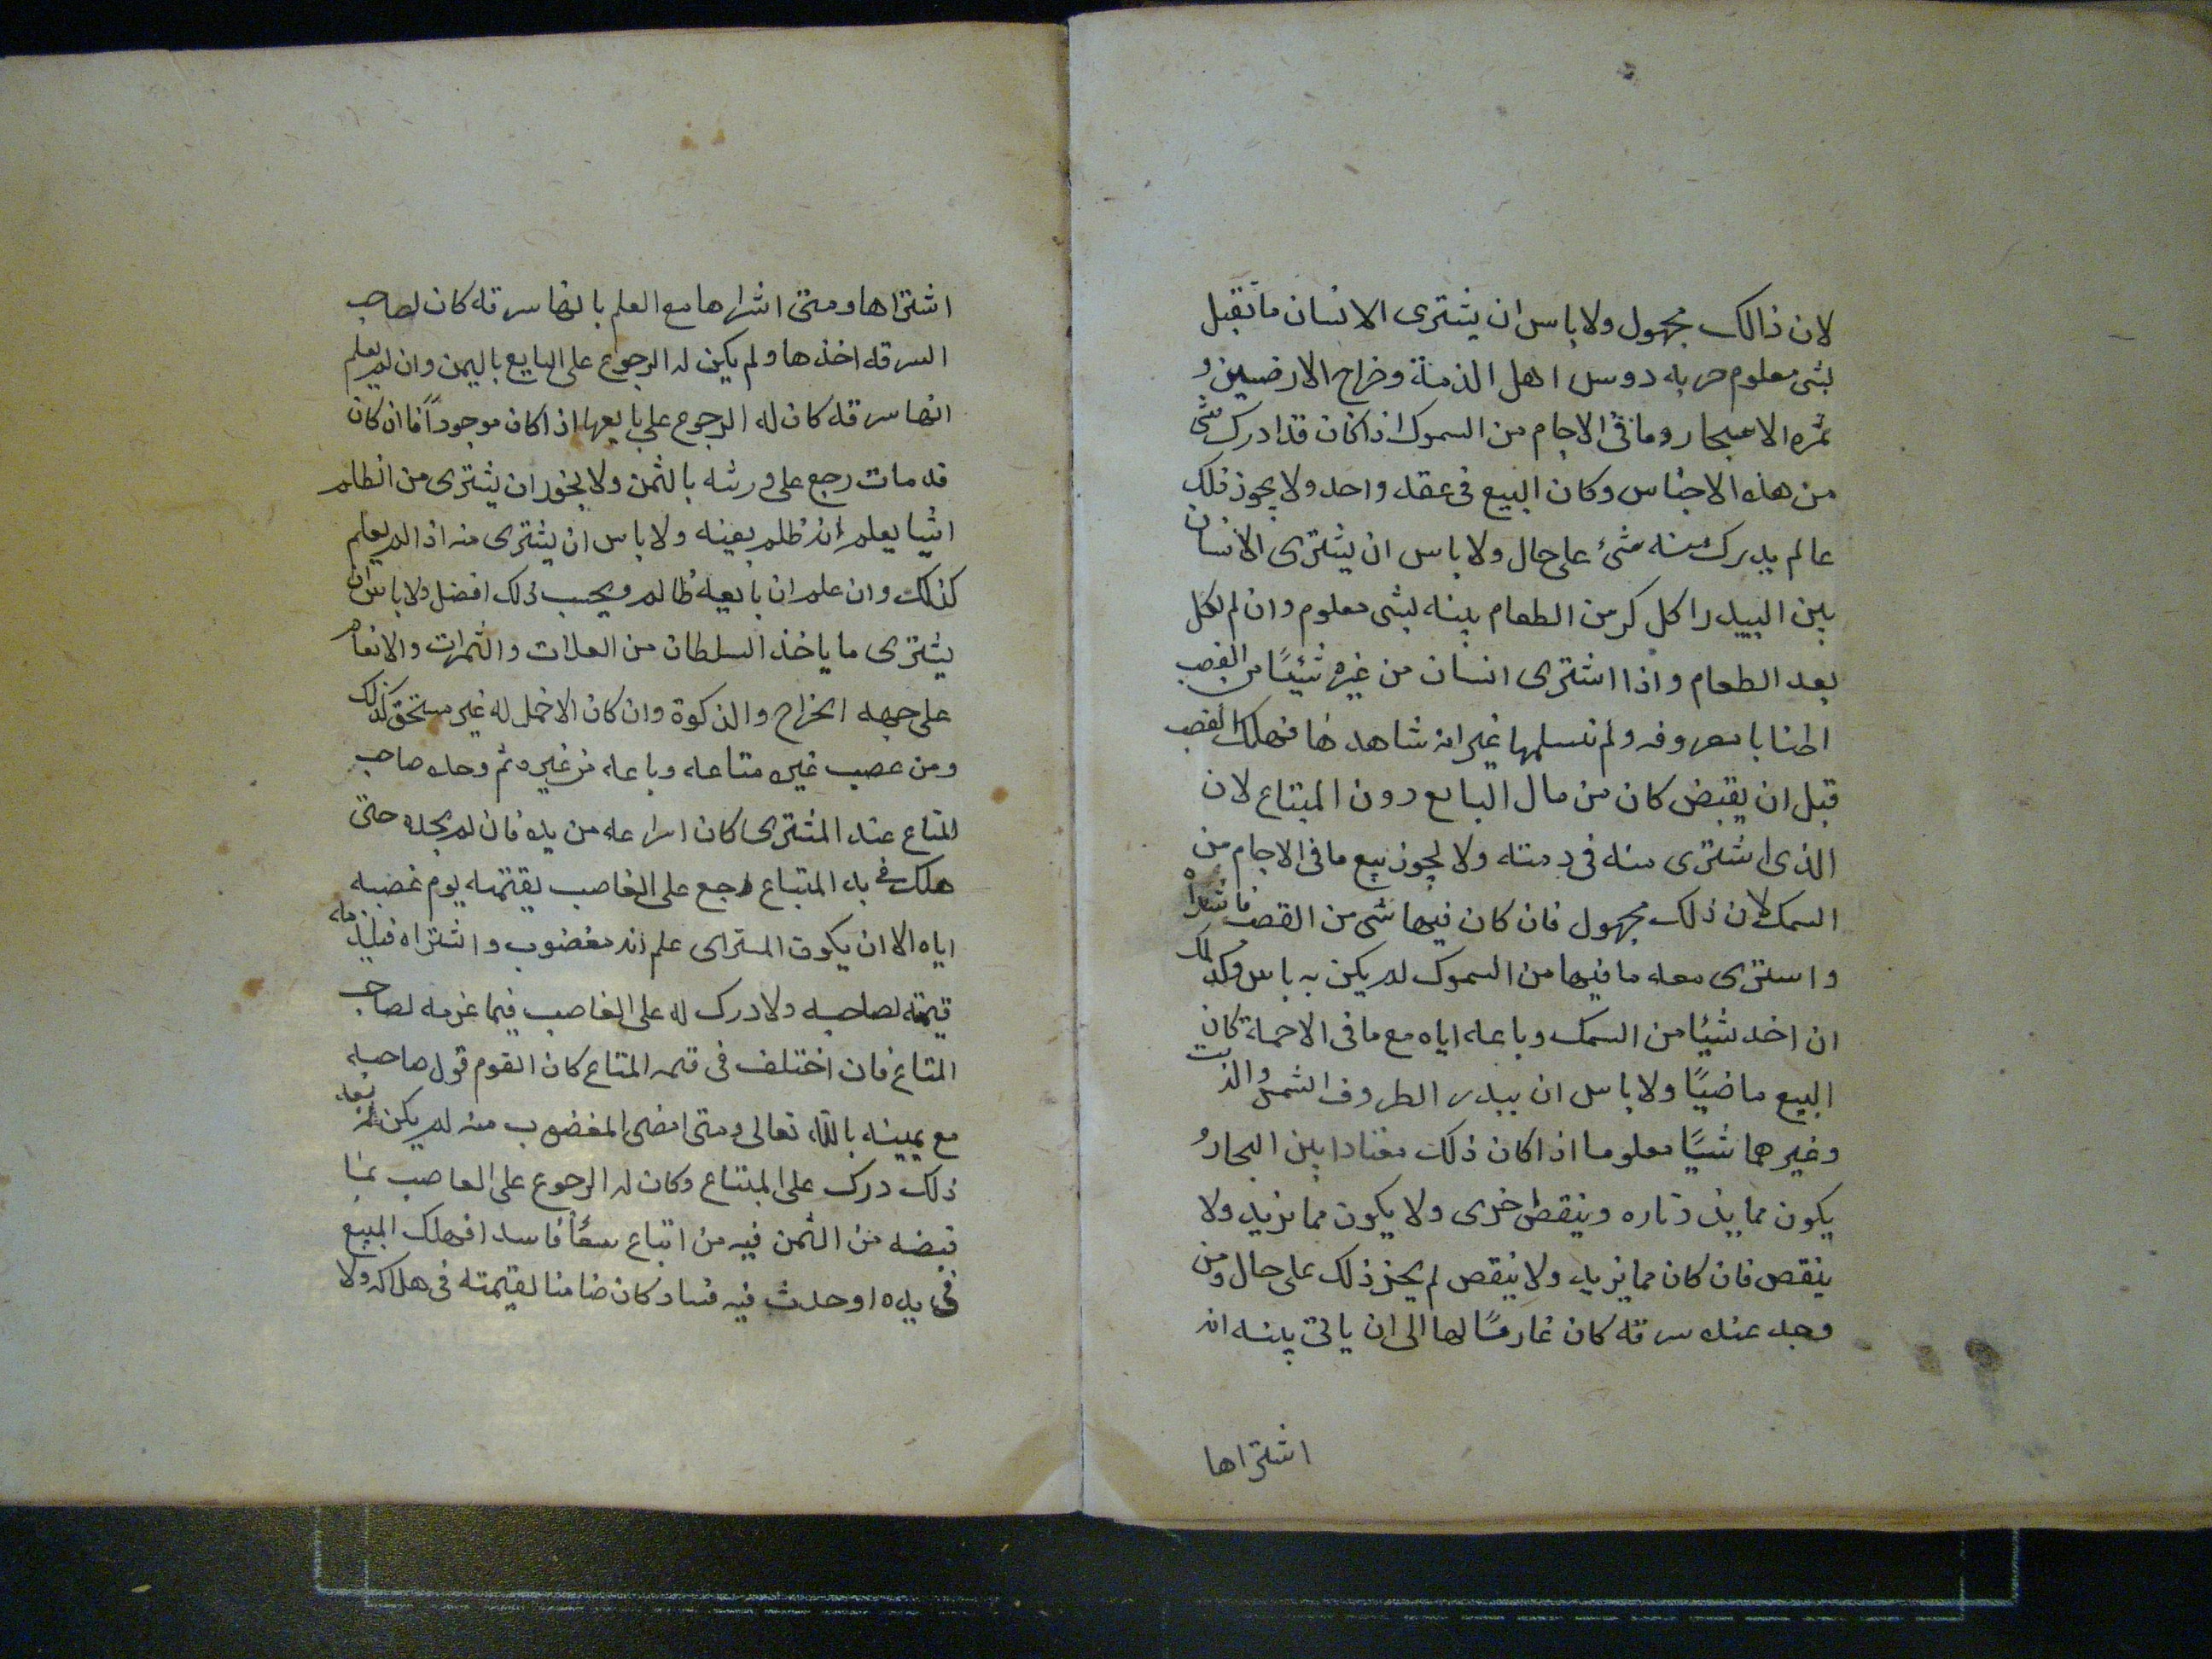 لان ذالك مجهول ولا باس ان يشترى الانسان ما تقبل
بشى معلوم حربه دوس اهل الذمة وخراج الارضين و
ثمره الاشجار وما فى الاجام من السموك اذا كان قد ادرك شى
من هذه الاجناس وكان البيع فى عقد واحد ولا يجوز ذلك
عالم يدرك منه شئ على حال ولا باس ان يشترى الانسان
بين البيدر اكل كر من الطعام بينه بشى معلوم وان لم لكل
بعد الطعام واذا اشترى انسان من غيره شيئًا من القصب
اطنابا معروفه ولم تسلمها غير انه شاهدها فهلك القصب
قبل ان يقبض كان من مال البايع دون المبتاع لان
الذى اشترى منه فى ذمته ولا يجوز بيع ما فى الاجام من
السمك لان ذلك مجهول فان كان فيها شى من القصب فاشتراه
واسترى معه ما فيها من السموك لم يكن به باس وكذلك
ان اخد شيئا من السمك وباعه اياه مع ما فى الاحمة كان
البيع ماضيًا ولا باس ان يبدر الطروف الشمس والزيت
وغيرهما شيًا معلوما اذا كان ذلك معتادا بين التجار و
يكون مما يزيد تاره وينقص اخرى ولا يكون مما يزيد ولا
ينقص فان كان مما يزيد ولا ينقص لم يجز ذلك على حال ومن
وجد عنده سرقه كان غارمًا لها الى ان ياتى بينه انه
اشتراها
اشتراها ومتى اشراها مع العلم بانها سرقه كان لصاحب
السرقه اخذها ولم يكن له الرجوع على البايع باليمن وان لم يعلم
انها سرقه كان له الرجوع على بايعها اذا كان موجوداً فان كان
قد مات رجع على ورثه بالثمن ولا يجوز ان يشترى من الظالم
اشيا يعلم انه ظلم بعينه ولا باس ان يشترى منه اذا لم يعلم
كذلك وان علم ان بايعه ظالم ويجب ذلك افضل ولا باس ان
يشترى ما ياخذ السلطان من الغلات والثمرات والانعام
على جهه الخراج والزكوة وان كان الاخذ له غير مستحق كذلك
ومن عصب غيره متاعه وباعه من غيره ثم وجده صاحب
المتاع عند المشترى كان اسراعه من يده فان لم يجده حتى
هلك فى يد المبتاع رجع على الغاصب بقيمته يوم غصبه
اياه الا ان يكون المسترى علم انه مغضوب واشتراه فيلزمه
قيمته لصاحبه ولا درك له على الغاصب فيما غرمه لصاحب
المتاع فان اختلف فى قيمه المتاع كان القوم قول صاحبه
مع يمينه بالله تعالى ومتى امضى المغضوب منه لم يكن له بعد
ذلك درك على المبتاع وكان له الرجوع على الغاصب بما
قبضه من الثمن فيه من ابتاع بيعاً فاسدا فهلك المبيع
فى يده او حدث فيه فساد كان ضامنا لقيمته فى هلاكه ولا